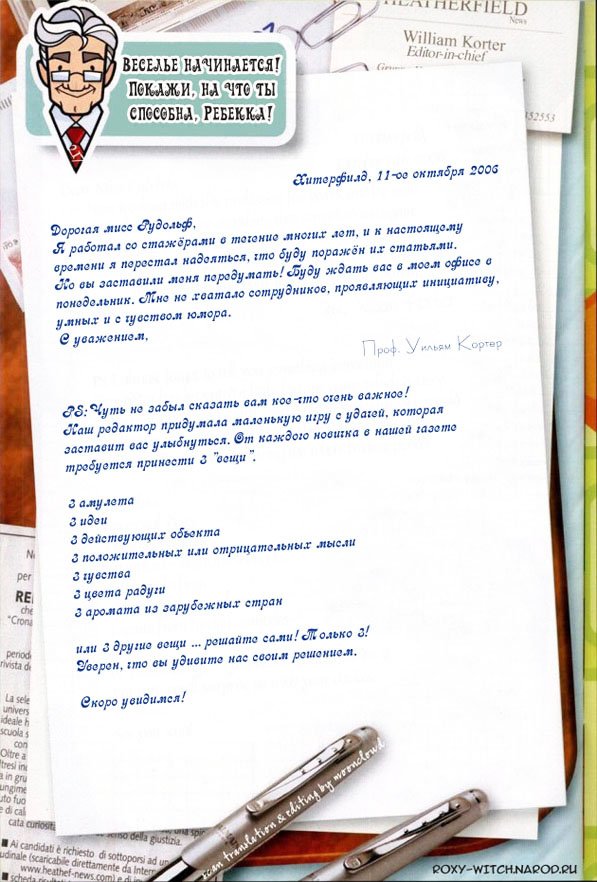 HEATHERFIELD
News
William Korter
Editor-in-chief
352553
ВЕСЕЛЬЕ НАЧИНАЕТСЯ!
ПОКАЖИ, НА ЧТО ТЫ
СПОСОБНА, РЕБЕККА!
Хитерфилд, 11-ое октября 2006
Дорогая мисс Рудольф,
Я работал со стажёрами в течение многих лет, и к настоящему
времени я перестал надеяться, что буду поражён их статьями.
Но вы заставили меня передумать! Буду ждать вас в моем офисе в
понедельник. Мне не хватало сотрудников, проявляющих инициативу,
умных и с чувством юмора.
С уважением,
Проф. Уильям Кортер
PS: Чуть не забыл сказать вам кое-что очень важное!
Наш редактор придумала маленькую игру с удачей, которая
заставит вас улыбнуться. От каждого новичка в нашей газете
требуется принести 3 "вещи".
3 амулета
3 идеи
3 действующих объекта
3 положительных или отрицательных мысли
3 чувства
3 цвета радуги
3 аромата из зарубежных стран
или 3 другие вещи ... решайте сами! Только 3!
Уверен, что вы удивите нас своим решением.
Скоро увидимся!
scan translation & editing by mooncloud
per
RE
che
"Crona
period
rivista d
La sele
univers
ideale h
scuola s
con
Oltre a
cata curiosità
senso della giustizia.
Ai candidati è richiesto di sottoporsi ad un
(scaricabile direttamente da Intern
www.heathef-news.com) e di
ROXY-WITCH.NAROD.RU